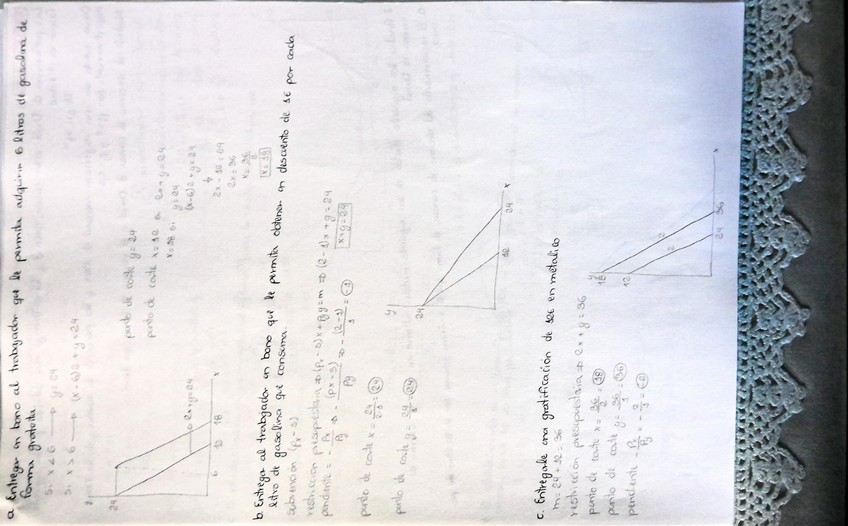 a. Entregar un bono al trabajador que le permita adquirir 6 litros de gasolina de
forma gratuita.
Si x ≤ 6 → y = 24
Si x > 6 → (x-6)2 + y = 24
punto de corte y = 24
punto de corte x = 12
2x + y = 24
y = 24
(x-6)2 + y = 24
2x - 12 = 24
2x = 36
x = 36/2
x = 18
24
2x+y=24
6 12 18
x
b. Entregar al trabajador un bono que le permita obtener un descuento de 1€ por cada
litro de gasolina que consuma.
subvención (Px - s)
restricción presupuestaria ⇒ (Px - s)x + Pyy = m ⇒ (2-1)x + y = 24
pendiente = - Px/Py = - (Px-s)/Py = - (2-1)/1 = -1
x + y = 24
punto de corte x = 24/2-1 = 24
punto de corte y = 24/1 = 24
y
24
12 24
x
c. Entregarle una gratificación de 12€ en metálico
m = 24 + 12 = 36
restricción presupuestaria ⇒ 2x + y = 36
punto de corte x = 36/2 = 18
punto de corte y = 36/1 = 36
pendiente - Px/Py = - 2/1 = -2
y
18
12
2
2
24 36
x